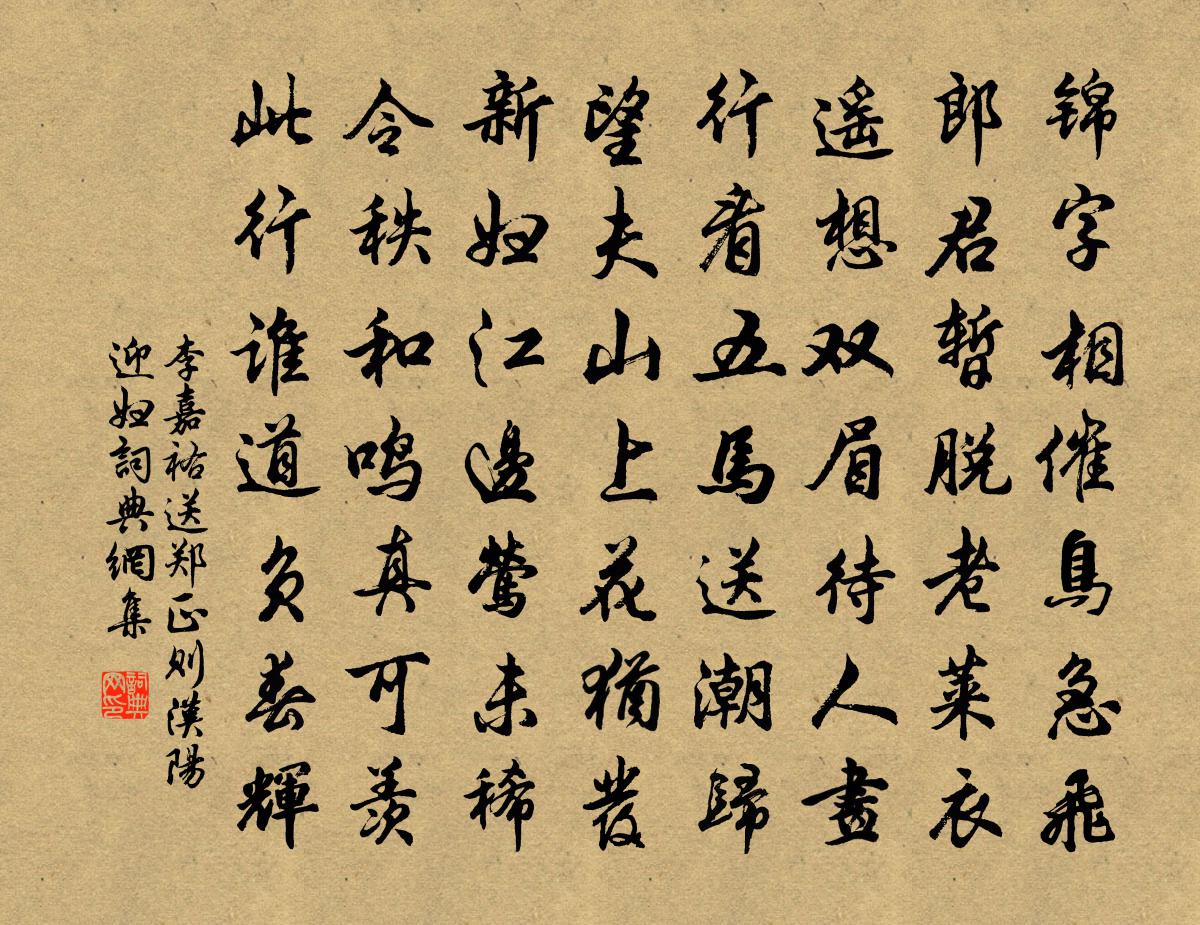 锦字相催鳥急飛
郎君暫脱老萊衣
遥想双眉待人畫
行看五馬送潮歸
望夫山上花猶發
新妇江邊鶯未稀
令秩和鸣真可羡
此行誰道负春輝
李嘉祐送郑正则漢陽
迎妇詞典網集
詞典
网印